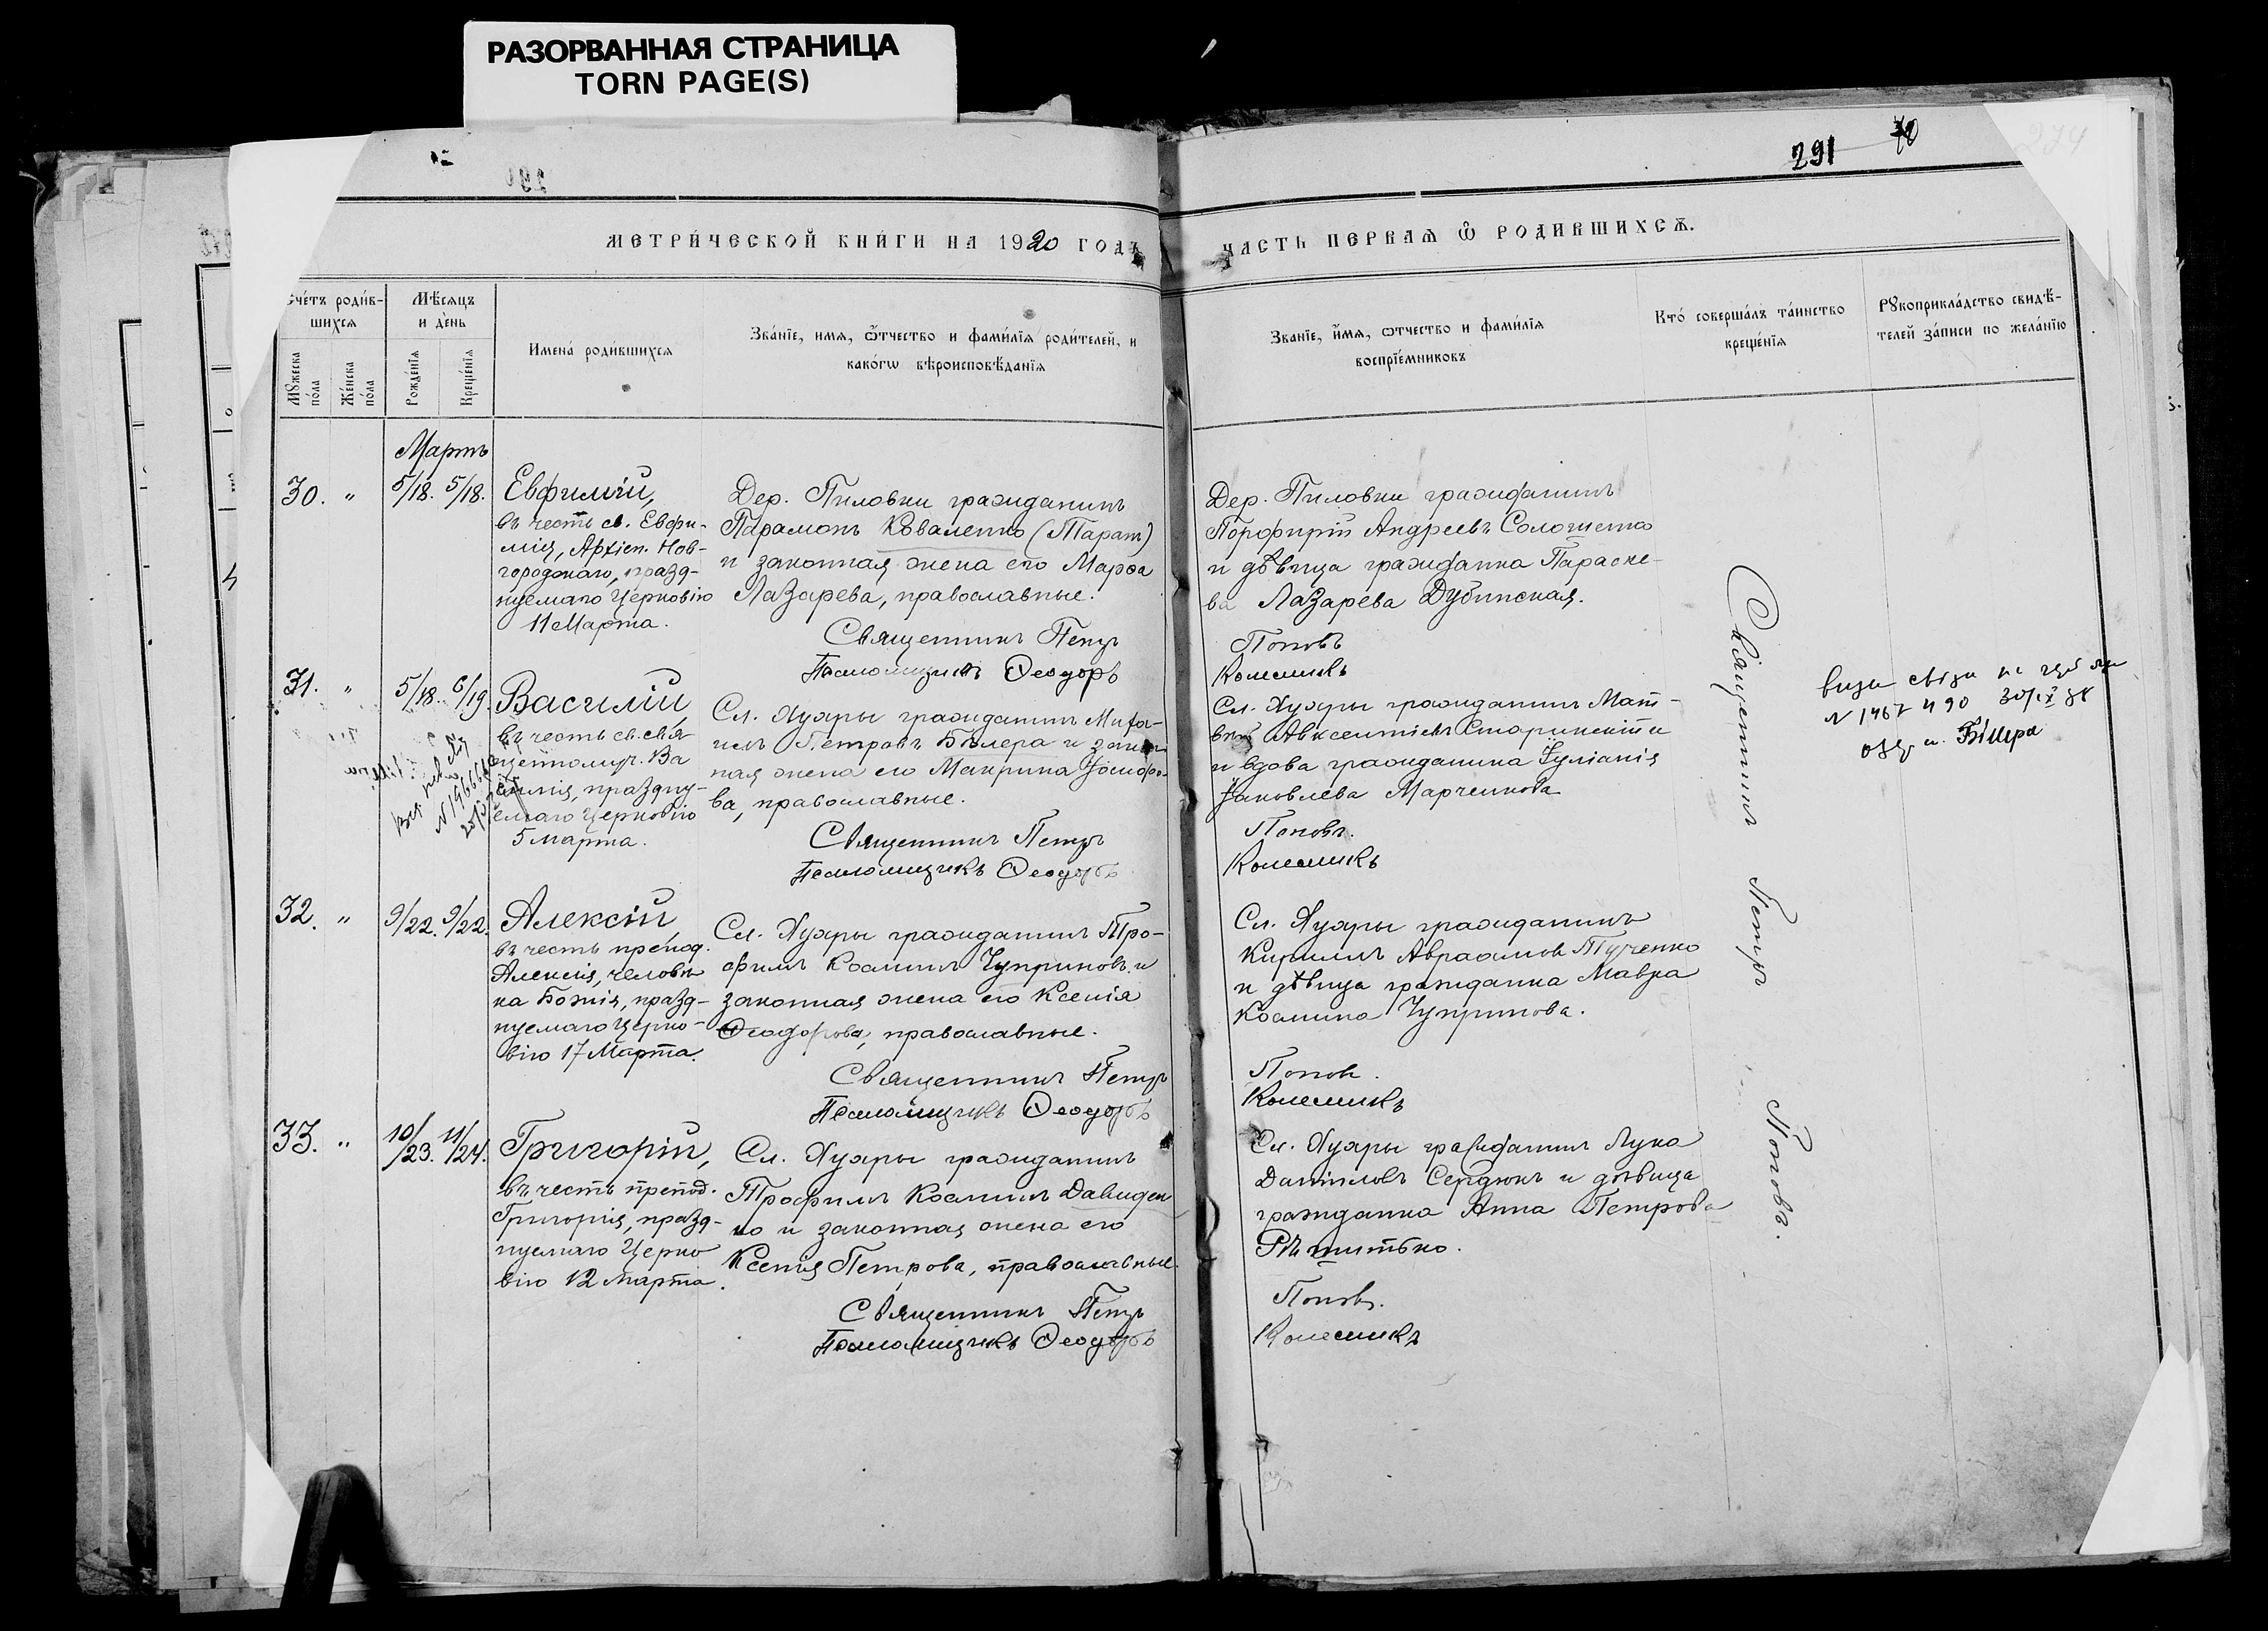 РАЗОРВАННАЯ СТРАНИЦА
TORN PAGE(S)
291
МЕТРИ́ЧЕСКОЙ КНИ́ГИ НА 1920 ГОДЪ
ЧАСТЬ ПЕРВАѦ Ѽ РОДИВШИХСѦ.
Сче́тъ роди́в-
шихсѧ
Мꙋжеска по́ла
Же́нска по́ла
Мѣ́сѧцъ
и де́нь
Рожде́нїѧ
Креще́нїѧ
Имена́ роди́вшихсѧ
Зва́нїе, имѧ, ѻ́тчество и фами́лїѧ роди́телей, и
како́гѡ вѣроисповѣ́данїѧ
Зва́нїе, и́мѧ, ѻтчество и фами́лїѧ
воспрїе́мниковъ
Кто́ соверша́лъ та́инство
креще́нїѧ
Рꙋкоприкла́дство свидѣ́-
телей за́писи по жела́нїю
Мартъ
30. " 5/18. 5/18.
Евфимій,
въ честь св. Евфи-
мія, Архіеп. Нов-
городскаго, празд-
нуемаго Церковію
11 Марта.
Дер. Пиловки гражданинъ
Парамонъ Коваленко (Таран)
и законная жена его Марѳа
Лазарева, православные.
Священникъ Петръ
Псаломщикъ Ѳеодоръ
Дер. Пиловки гражданинъ
Порфирій Андреевъ Сологиенко
и дѣвица гражданка Параске-
ва Лазарева Дубинская.
Поповъ
Колесникъ
31. " 5/18. 6/19.
Василій,
въ честь св. свя-
щенномуч. Ва
силія, праздну-
емаго Церковію
5 марта.
Сл. Ахуары гражданинъ Миха-
илъ Петровъ Билера и закон
ная жена его Макрина Іосифо-
ва, православные.
Священникъ Петръ
Псаломщикъ Ѳеодоръ
Сл. Ахуары гражданинъ Мат-
вѣй Авксентіевъ Старинскій и
и вдова гражданина Іуліанія
Яковлева Марченкова
Поповъ.
Колесникъ
N 1467490 30/IX
Білера
32. " 9/22. 9/22.
Алексій,
въ честь препод.
Алексія, человѣ-
ка Божія, празд-
нуемаго Церко-
вію 17 Марта.
Сл. Ахуары гражданинъ Тро-
фимъ Косминъ Чуприновъ и
законная жена его Ксенія
Ѳеодорова, православные.
Священникъ Петръ
Псаломщикъ Ѳеодоръ
Сл. Ахуары гражданинъ
Кириллъ Авраамовъ Тутченко
и дѣвица гражданка Мавра
Космина Чупринова.
Поповъ.
Колесникъ
33. " 10/23. 11/24.
Григорій,
въ честь препод.
Григорія, празд-
нуемаго Церко
вію 12 Марта.
Сл. Ахуары гражданинъ
Трофимъ Косминъ Давиден
ко и законная жена его
Ксенія Петрова, православные.
Священникъ Петръ
Псаломщикъ Ѳеодоръ
Сл. Ахуары гражданинъ Лука
Даниловъ Сердюкъ и дѣвица
гражданка Анна Петрова
Рѣшитько.
Поповъ.
Колесникъ
Священникъ Петръ Поповъ.